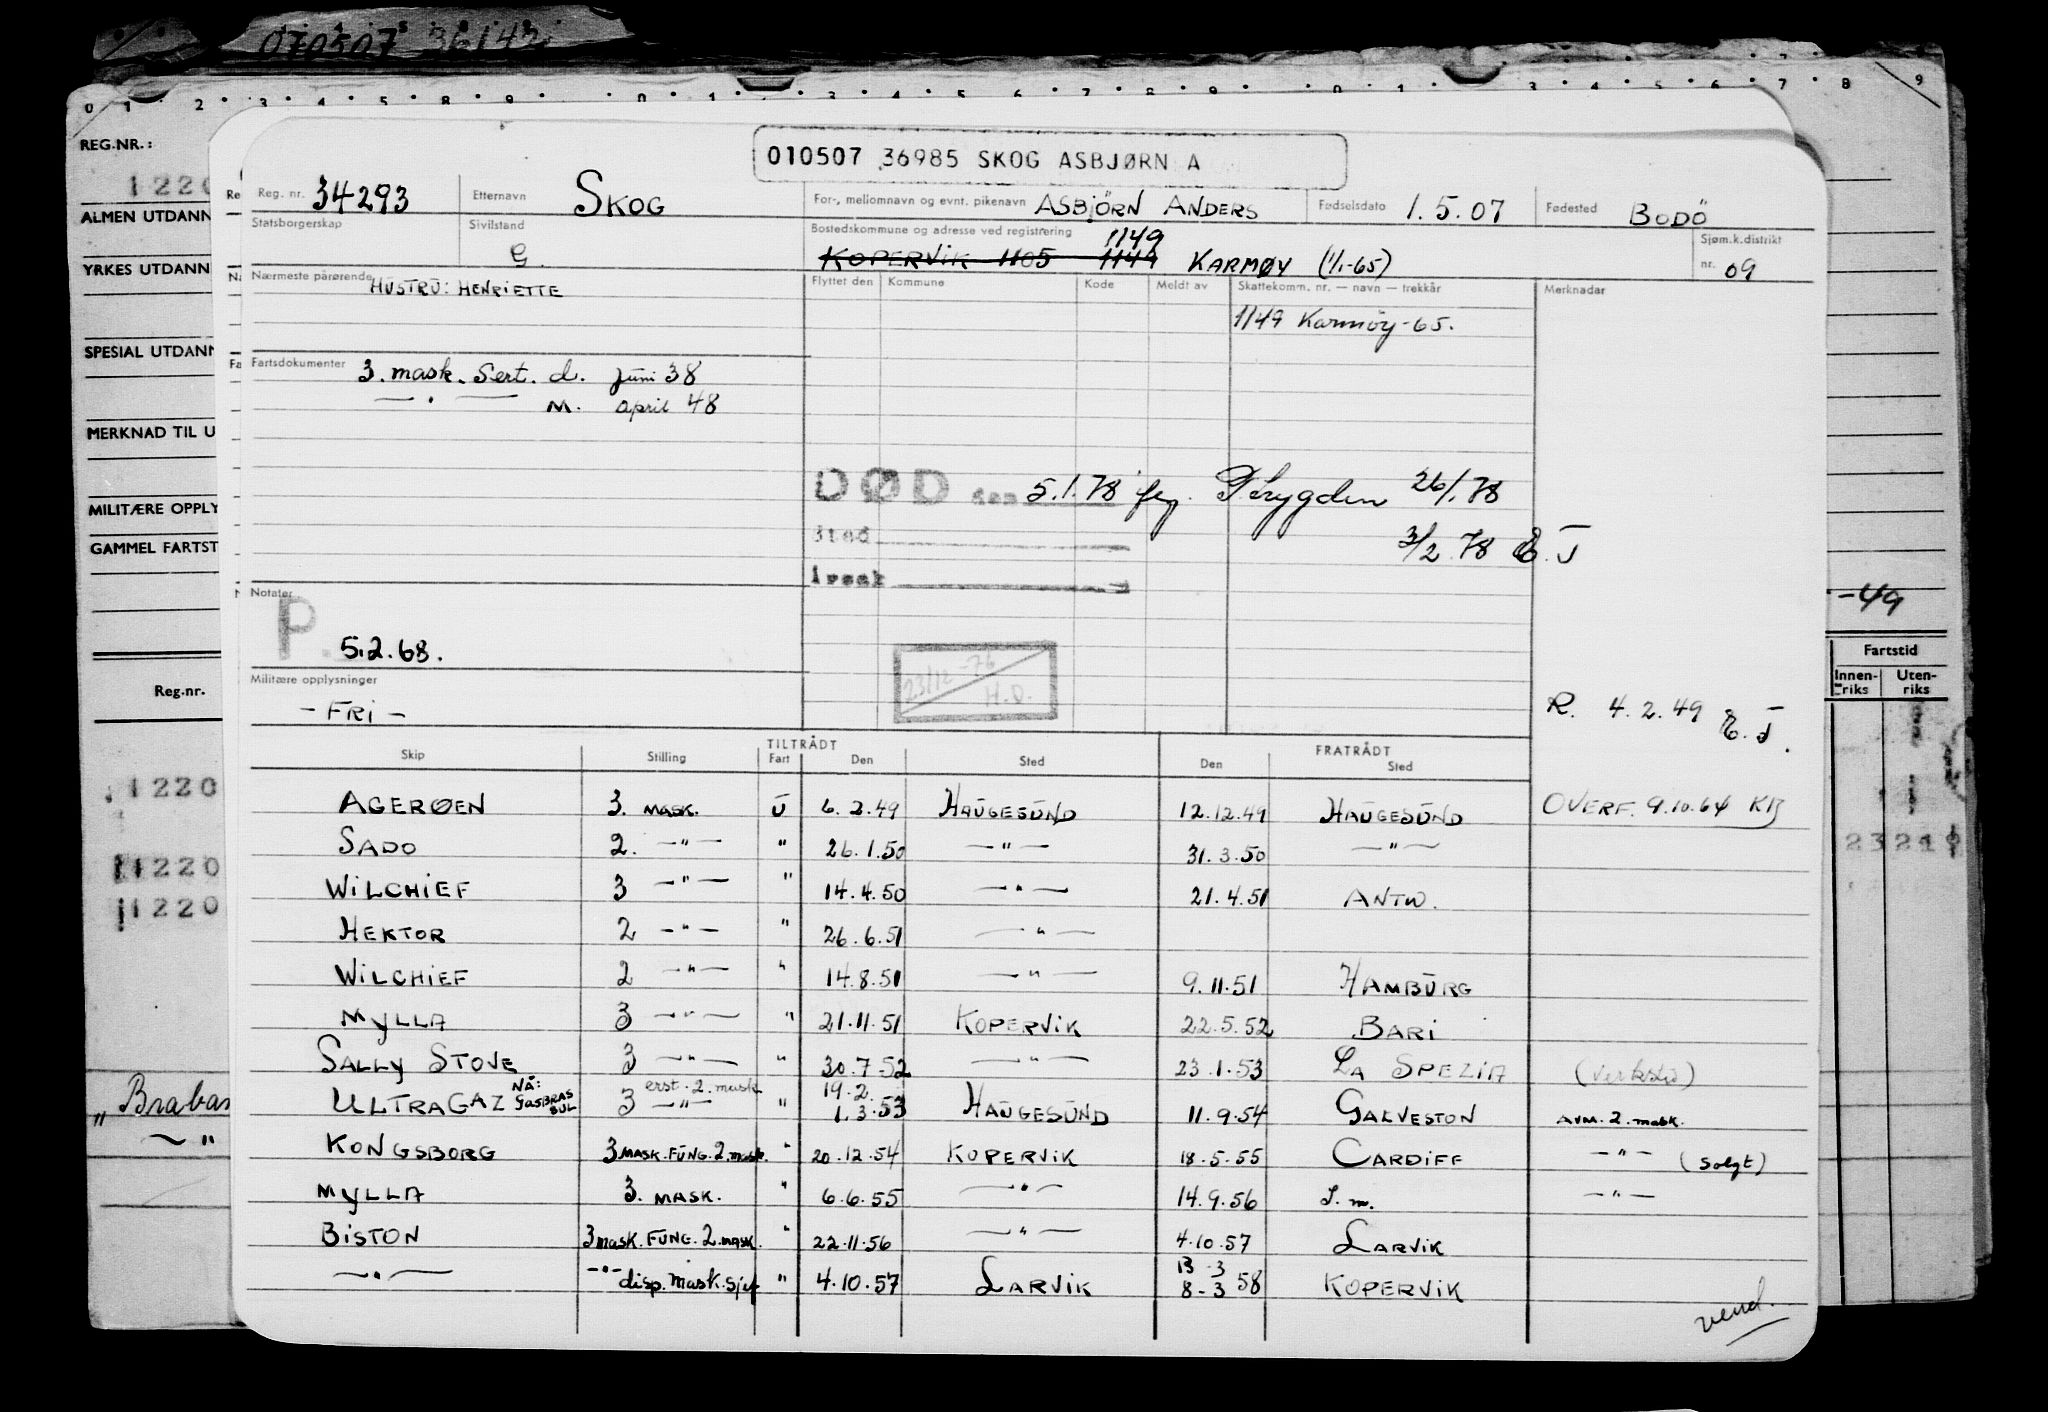 070507 36142
0 1 2 3 4 5 8 9 0 1 3 4 5 6 7 8 9 0 1 3 4 5 6 7 8 9
REG.NR.:
1220
ALMEN UTDANN
YRKES UTDANN
SPESIAL UTDANN
MERKNAD TIL U
MILITÆRE OPPLY
GAMMEL FARTST
Reg.nr.
1220
1220
1220
" Braban
— " 
010507 36985 SKOG ASBJØRN A
Reg. nr. 34293 Etternavn SKOG For-, mellomnavn og evnt. pikenavn ASBJÖRN ANDERS Fødselsdato 1.5.07 Fødested BODÖ
Statsborgerskap Sivilstand G. Bostedskommune og adresse ved registrering KOPERVIK 1105 1149 1149 KARMØY (1/1-65) Sjøm.k.distrikt nr. 09
Nærmeste pårørende HUSTRU: HENRIETTE Flyttet den Kommune Kode Meldt av Skattekomm. nr. — navn — trekkår Merknader
1149 Karmøy-65.
Fartsdokumenter 3. mask. sert. d. juni 38
— " — M. april 48
DØD den 5.1.78 flg. Trygden 26/1.78
Sted
3/2.78 E.J
Årsak
Notater
P. 5.2.68.
23/12-76
H.O.
Militære opplysninger
- FRI -
R. 4.2.49 E.J.
-49
Fartstid
Innen-riks Uten-riks
TILTRÅDT FRATRÅDT
Skip Stilling Fart Den Sted Den Sted
AGERØEN 3. MASK. U 6.2.49 HAUGESUND 12.12.49 HAUGESUND OVERF. 9.10.64 KB
SADO 2. —"— " 26.1.50 —"— 31.3.50 —"—
WILCHIEF 3 —"— " 14.4.50 —"— 21.4.51 ANTW.
HEKTOR 2 —"— " 26.6.51 —"—
WILCHIEF 2 —"— " 14.8.51 —"— 9.11.51 HAMBURG
MYLLA 3 —"— " 21.11.51 KOPERVIK 22.5.52 BARI
SALLY STOVE 3 —"— " 30.7.52 —"— 23.1.53 LA SPEZIA (verksted)
ULTRAGAZ NÅ: GASBRAS SUL 3 —"— erst. 2. mask " 19.2. 1.3.53 HAUGESUND 11.9.54 GALVESTON AVM. 2. mask.
KONGSBORG 3 MASK. FUNG. 2. mask. " 20.12.54 KOPERVIK 18.5.55 CARDIFF —"— (solgt)
MYLLA 3. MASK. " 6.6.55 —"— 14.9.56 S.m. —"—
BISTON 3 mask. FUNG. 2. MASK. " 22.11.56 —"— 4.10.57 LARVIK
—"— —"— disp. mask.sjef " 4.10.57 LARVIK 13-3 8-3 58 KOPERVIK
vend.